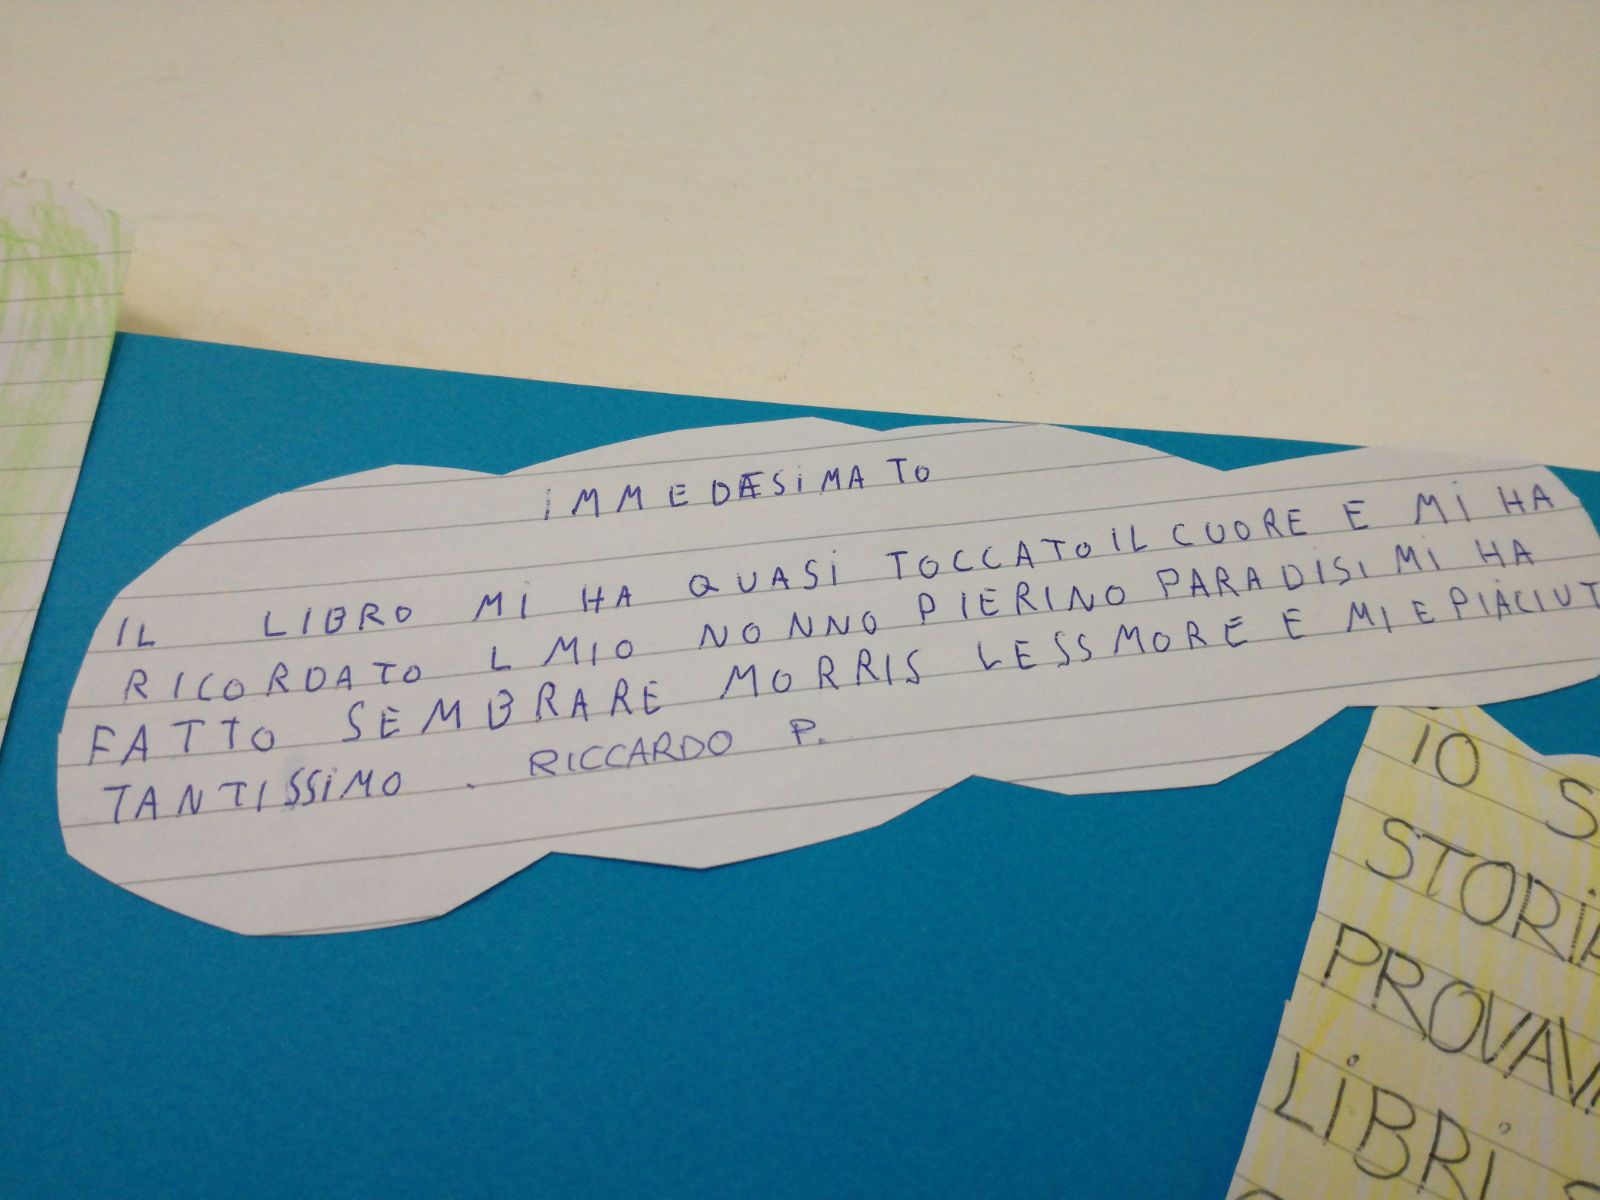 IMMEDESIMATO
IL LIBRO MI HA QUASI TOCCATO IL CUORE E MI HA
RICORDATO L MIO NONNO PIERINO PARADISI MI HA
FATTO SEMBRARE MORRIS LESSMORE E MI E PIACIUT
TANTISSIMO. RICCARDO P.
IO S
STORI
PROVAV
LIBRI